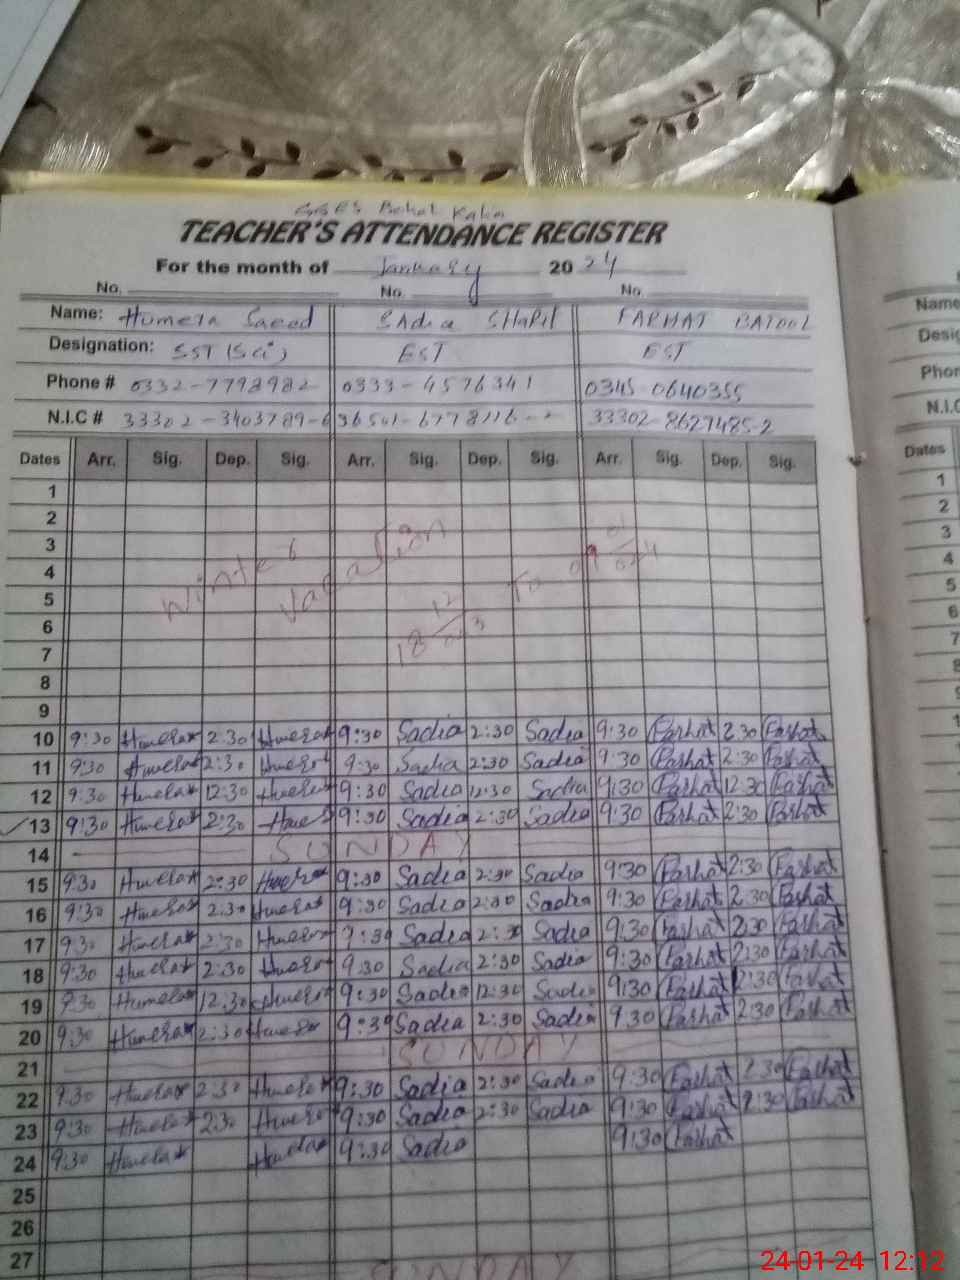 TEACHER'S ATTENDANCE REGISTER
For the month of January 2024
No. No. No.
Name: Humera Saeed SAdia SHaRif FARHAT BATOOL
Designation: SST (Sci) EST EST
Phone # 0332-7798982 0333-4576341 0345-0640355
N.I.C # 33302-3403789-6 36501-6778116- 33302-8627485-2
Dates Arr. Sig. Dep. Sig. Arr. Sig. Dep. Sig. Arr. Sig. Dep. Sig.
1
2
3
4
5
6
7
8
9
winter vacation 18 12 To 09 01
10 9:30 Humera 2:30 Humera 9:30 Sadia 2:30 Sadia 9:30 Farhat 2:30 Farhat
11 9:30 Humera 2:30 Humera 9:30 Sadia 2:30 Sadia 9:30 Farhat 2:30 Farhat
12 9:30 Humera 12:30 Humera 9:30 Sadia 12:30 Sadia 9:30 Farhat 12:30 Farhat
13 9:30 Humera 2:30 9:30 Sadia 2:30 Sadia 9:30 Farhat 2:30 Farhat
14 SUNDAY
15 9:30 Humera 2:30 Humera 9:30 Sadia 2:30 Sadia 9:30 Farhat 2:30 Farhat
16 9:30 Humera 2:30 Humera 9:30 Sadia 2:30 Sadia 9:30 Farhat 2:30 Farhat
17 9:30 Humera 2:30 Humera 9:30 Sadia 2:30 Sadia 9:30 Farhat 2:30 Farhat
18 9:30 Humera 2:30 Humera 9:30 Sadia 2:30 Sadia 9:30 Farhat 2:30 Farhat
19 9:30 Humera 12:30 Humera 9:30 Sadia 12:30 Sadia 9:30 Farhat 2:30 Farhat
20 9:30 Humera 2:30 Humera 9:30 Sadia 2:30 Sadia 9:30 Farhat 2:30 Farhat
21 SUNDAY
22 9:30 Humera 2:30 Humera 9:30 Sadia 2:30 Sadia 9:30 Farhat 2:30 Farhat
23 9:30 Humera 2:30 Humera 9:30 Sadia 2:30 Sadia 9:30 Farhat 2:30 Farhat
24 9:30 Humera Humera 9:30 Sadia 9:30 Farhat
25
26
27
SUNDAY
Name
Desig
Phon
N.I.C
Dates
1
2
3
4
5
6
7
24-01-24 12:12